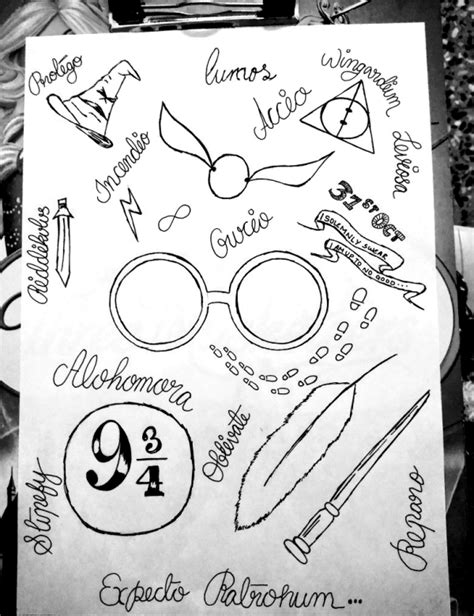 Protego
lumos
Wingardium
Leviosa
Accio
Incendio
Riddikulus
31st OCT
I SOLEMNLY SWEAR
I AM UP TO NO GOOD...
Alohomora
9 3/4
Obliviate
Stupefy
Reparo
Expecto Patronum...